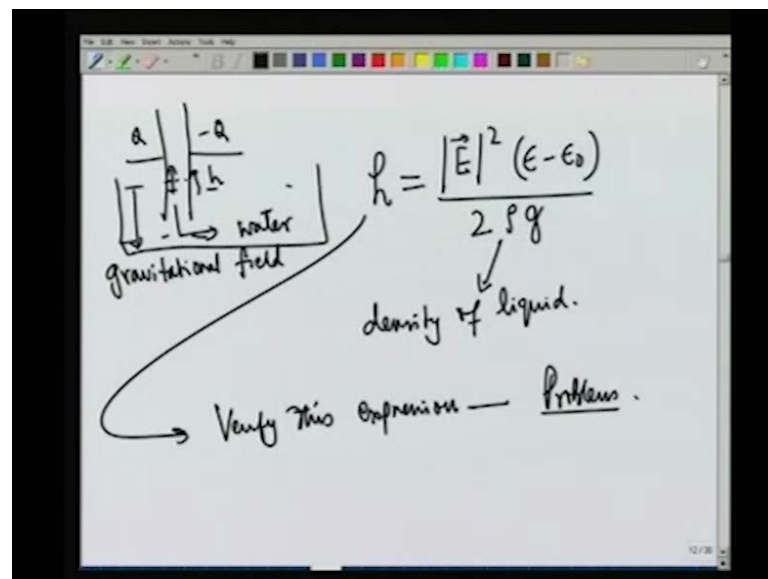 File Edit View Insert Actions Tools Help
Q -Q
h
water
gravitational field
h = |E⃗|² (ϵ - ϵ₀) / 2 ρ g
density of liquid.
Verify this expression — Problems.